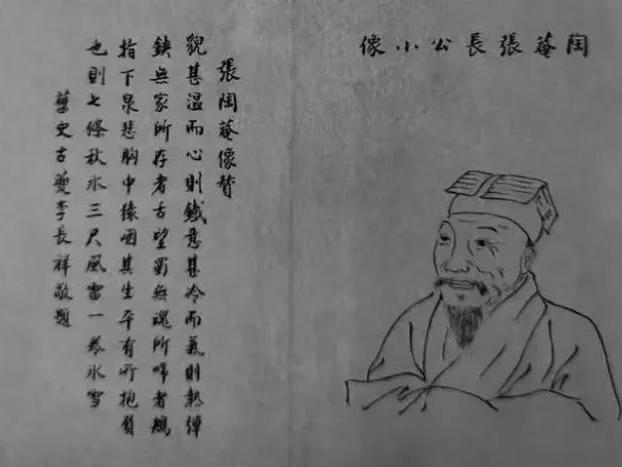 陶菴張長公小像
張陶菴像贊
貌甚溫而心則鐵意甚冷而氣則熱彈
鋏無家所存者舌望蜀無魂所啼者鵑
指下泉悲胸中猿咽其生平有所抱負
也則七條秋水三尺風雷一卷氷雪
舊史古夔李長祥敬題